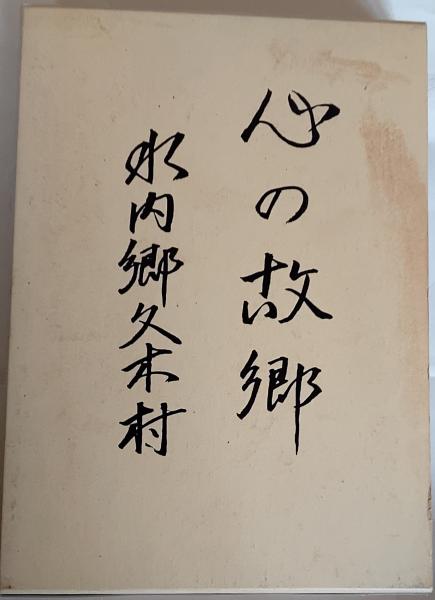 心の故郷
水内郷久木村